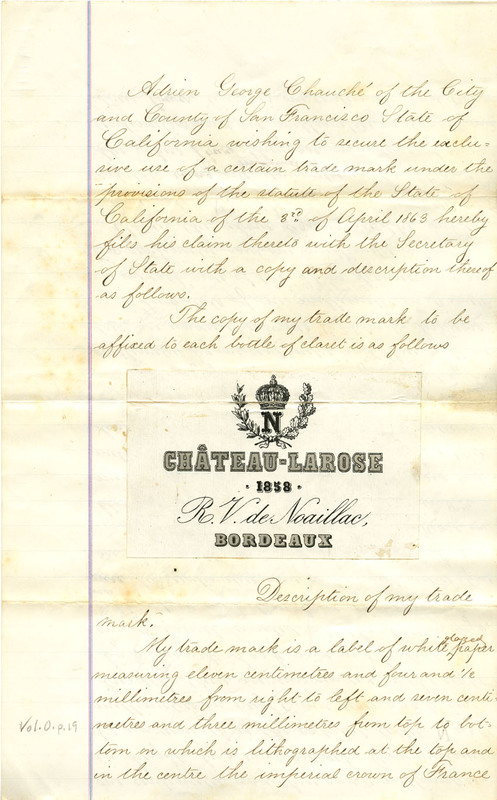 Adrien George Chauché of the City
and County of San Francisco State of
California wishing to secure the exclu-
sive use of a certain trade mark under the
provisions of the statute of the State of
California of the 3rd of April 1863 hereby
files his claim thereto with the Secretary
of State with a copy and description thereof
as follows.
The copy of my trade mark to be
affixed to each bottle of claret is as follows
N
CHÂTEAU-LAROSE
· 1858 ·
R. V. de Noaillac,
BORDEAUX
Description of my trade
mark.
My trade mark is a label of white glazed paper
measuring eleven centimetres and four and ½
millimetres from right to left and seven centi-
metres and three millimetres from top to bot-
Vol. D. p. 19
tom on which is lithographed at the top and
in the centre the imperial crown of France